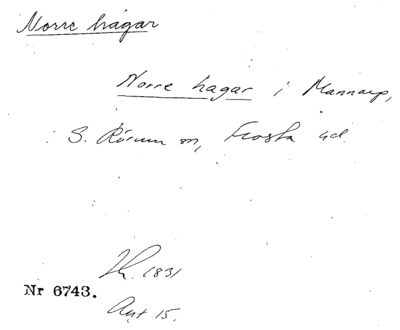 Norre hagar
Norre hagar i Mannarp,
S. Rörum sn, Frosta hd.
1831
Nr 6743.
Akt 15.